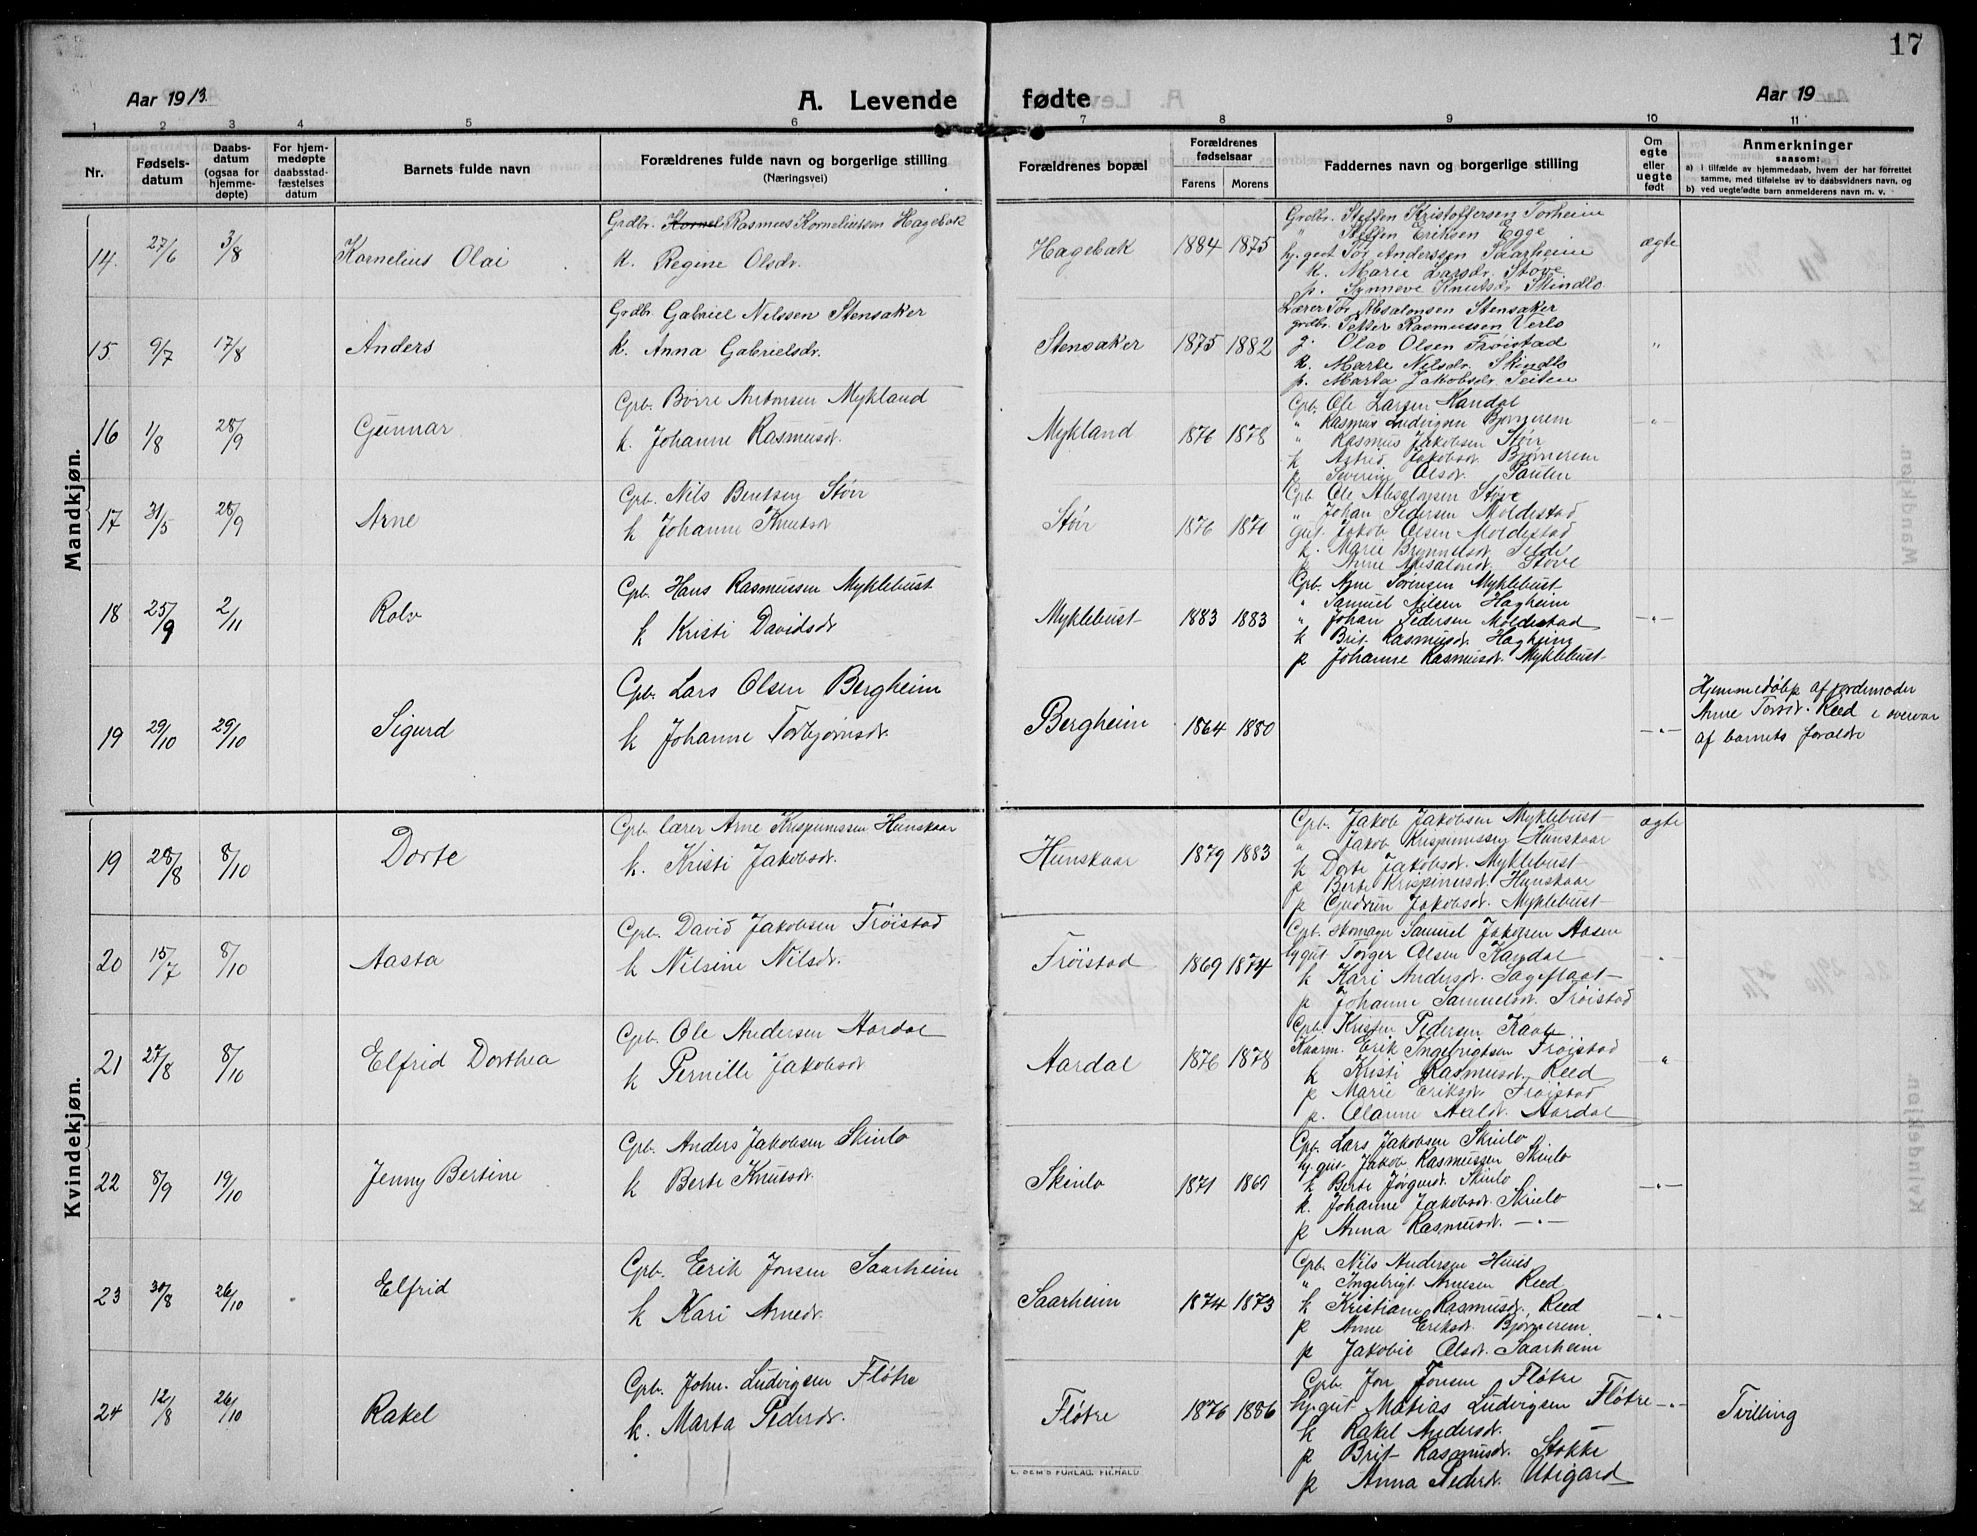 17
Aar 1913.
A. Levende fødte
Aar 19
1 2 3 4 5 6 7 8 9 10 11
Nr.
Fødsels-datum
Daabs-datum (ogsaa for hjemme-døpte)
For hjem-medøpte daabsstad-fæstelses datum
Barnets fulde navn
Forældrenes fulde navn og borgerlige stilling
(Næringsvei)
Forældrenes bopæl
Forældrenes fødselsaar
Farens Morens
Faddernes navn og borgerlige stilling
Om egte eller uegte født
Anmerkninger
saasom:
a) I tilfælde av hjemmedaab, hvem der har forrettet samme, med tilføielse av to daabsvidners navn, og
b) ved uegtefødte barn anmelderens navn m. v.
Mandkjøn.
14. 27/6 3/8 Kornelius Olai
Grdbr. Rasmus Korneliussen Hagebak
k. Regine Olsdr.
Hagebak 1884 1875
Grdbr. Steffen Kristoffersen Torheim
" Steffen Eriksen Egge
Tor Anderssen Saarheim
k. Marie Larsdr. Støve
p. Synneve Knutsdr. Skindlo
ægte
15. 9/7 17/8 Anders
Grdbr. Gabriel Nilssen Stensaker
k. Anna Gabrielsdr.
Stensaker 1875 1882
Lærer Tor Absalonsen Stensaker
grdbr. Petter Rasmussen Verlo
g. Olav Olsen Frøistad
k. Marte Nilsdr. Skindlo
p. Marta Jakobsdr. Teiten
"
16 1/8 28/9 Gunnar
Grb. Børre Antonsen Mykland
k. Johanne Rasmusdr.
Mykland 1876 1878
Grb. Ole Larsen Kandal
" Rasmus Ludvigsen Bjørnerem
" Rasmus Jakobsen Støir
k Astrid Jakobsdr. Bjørnerem
p Severine Olsdr.
-"-
17 31/5 28/9 Arne
Grb. Nils Bentsen Støir
k Johanne Knutsdr
Støir 1876 1871
Grb. Ole Absalonsen Støve
" Johan Pedersen Moldestad
gut. Jakob Olsen Moldestad
k. Marie
p Anne Absalonsdr. Støve
18 25/9 2/11 Rolv
Grb. Hans Rasmussen Myklebust
k Kristi Davidsdr
Myklebust 1883 1883
Grb. Arne Sørensen Myklebust
" Samuel Nilsen Hagheim
" Johan Pedersen Moldestad
k Brit. Rasmusdr. Hagheim
p Johanne Rasmusdr. Myklebust
-"-
19 29/10 29/10 Sigurd
Grb. Lars Olsen Bergheim
k Johanne Torbjørnsdr.
Bergheim 1864 1880
-"-
Hjemmedøbt af jordemoder
Anne Reed i overvær
af barnets foraldre
Kvindekjøn.
19 28/8 8/10 Dorte
Grb. lærer Arne Krispinussen Hunskaar
k. Kristi Jakobsdr.
Hunskaar 1879 1883
Grb. Jakob Jakobsen Myklebust
" Jakob Krispinussen Hunskaar
k Dorte Jakobsdr. Myklebust
p Berte Krispinusdr. Hunskaar
p Gudrun Jakobsdr. Myklebust
ægte
20 15/7 8/10 Aasta
Grb. David Jakobsen Frøistad
k Nilsine Nilsdr.
Frøistad 1869 1874
Grb. skomager Samuel Jakobsen Aasen
Torger Olsen Kandal
k Kari Andersdr.
p Johanne Samuelsdr. Frøistad
21 27/8 8/10 Elfrid Dorthea
Grb. Ole Andersen Aardal
k Pernille Jakobsdr
Aardal 1876 1878
Grb. Kristen Pedersen
Erik Ingebrigtsen Frøistad
k Kristi Rasmusdr. Reed
p Marie Eriksdr. Frøistad
p. Olanne Aardal
"
22 8/9 19/10 Jenny Bertine
Grb. Anders Jakobsen Skinlo
k Berte Knutsdr.
Skinlo 1871 1869
Grb. Lars Jakobsen Skinlo
hj.gut Jakob Rasmussen Skinlo
k Berte Jørgendr. Skinlo
k. Johanne Jakobsdr Skinlo
p Anna Rasmusdr. -"-
-"-
23 30/8 26/10 Elfrid
Grb. Erik Jonsen Saarheim
k Kari Arnedr.
Saarheim 1874 1873
Grb Nils Andersen Huus
" Ingebrigt Arnesen Reed
k Kristiane Rasmusdr. Reed
p Anne Eriksdr. Bjørnerem.
p Jakobie Olsdr. Saarheim
-"-
24 12/8 26/10 Rakel
Grb. John. Ludvigsen Fløtre
k. Marta Pedersdr.
Fløtre 1876 1886
Grb. Jon Jonsen Fløtre
hj.gut Matias Ludvigsen Fløtre
k Rakel Andersdr.
p Brit Rasmusdr. Stokke
p Anna Pedersdr. Utigard
-"-
Tvilling
E. SEM'S FORLAG, FR.HALD